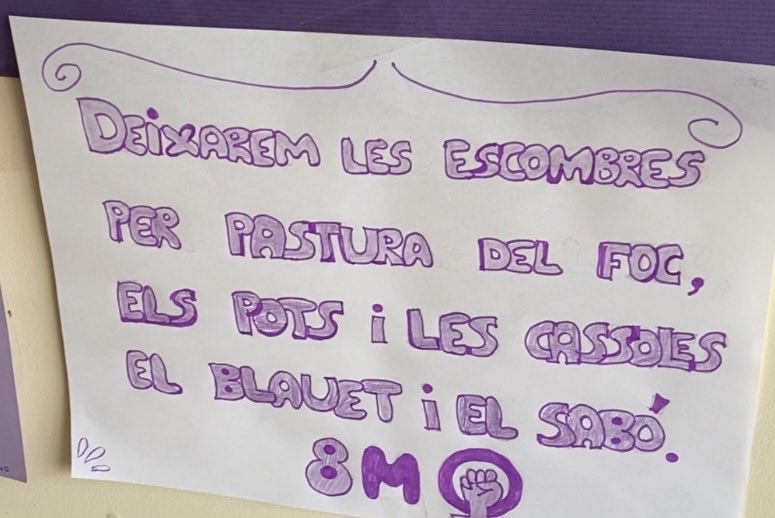 DEiXAREM LES ESCOMBRES
PER PASTURA DEL FOC,
ELS POTS i LES CASSOLES
EL BLAUET i EL SABÓ.
8M